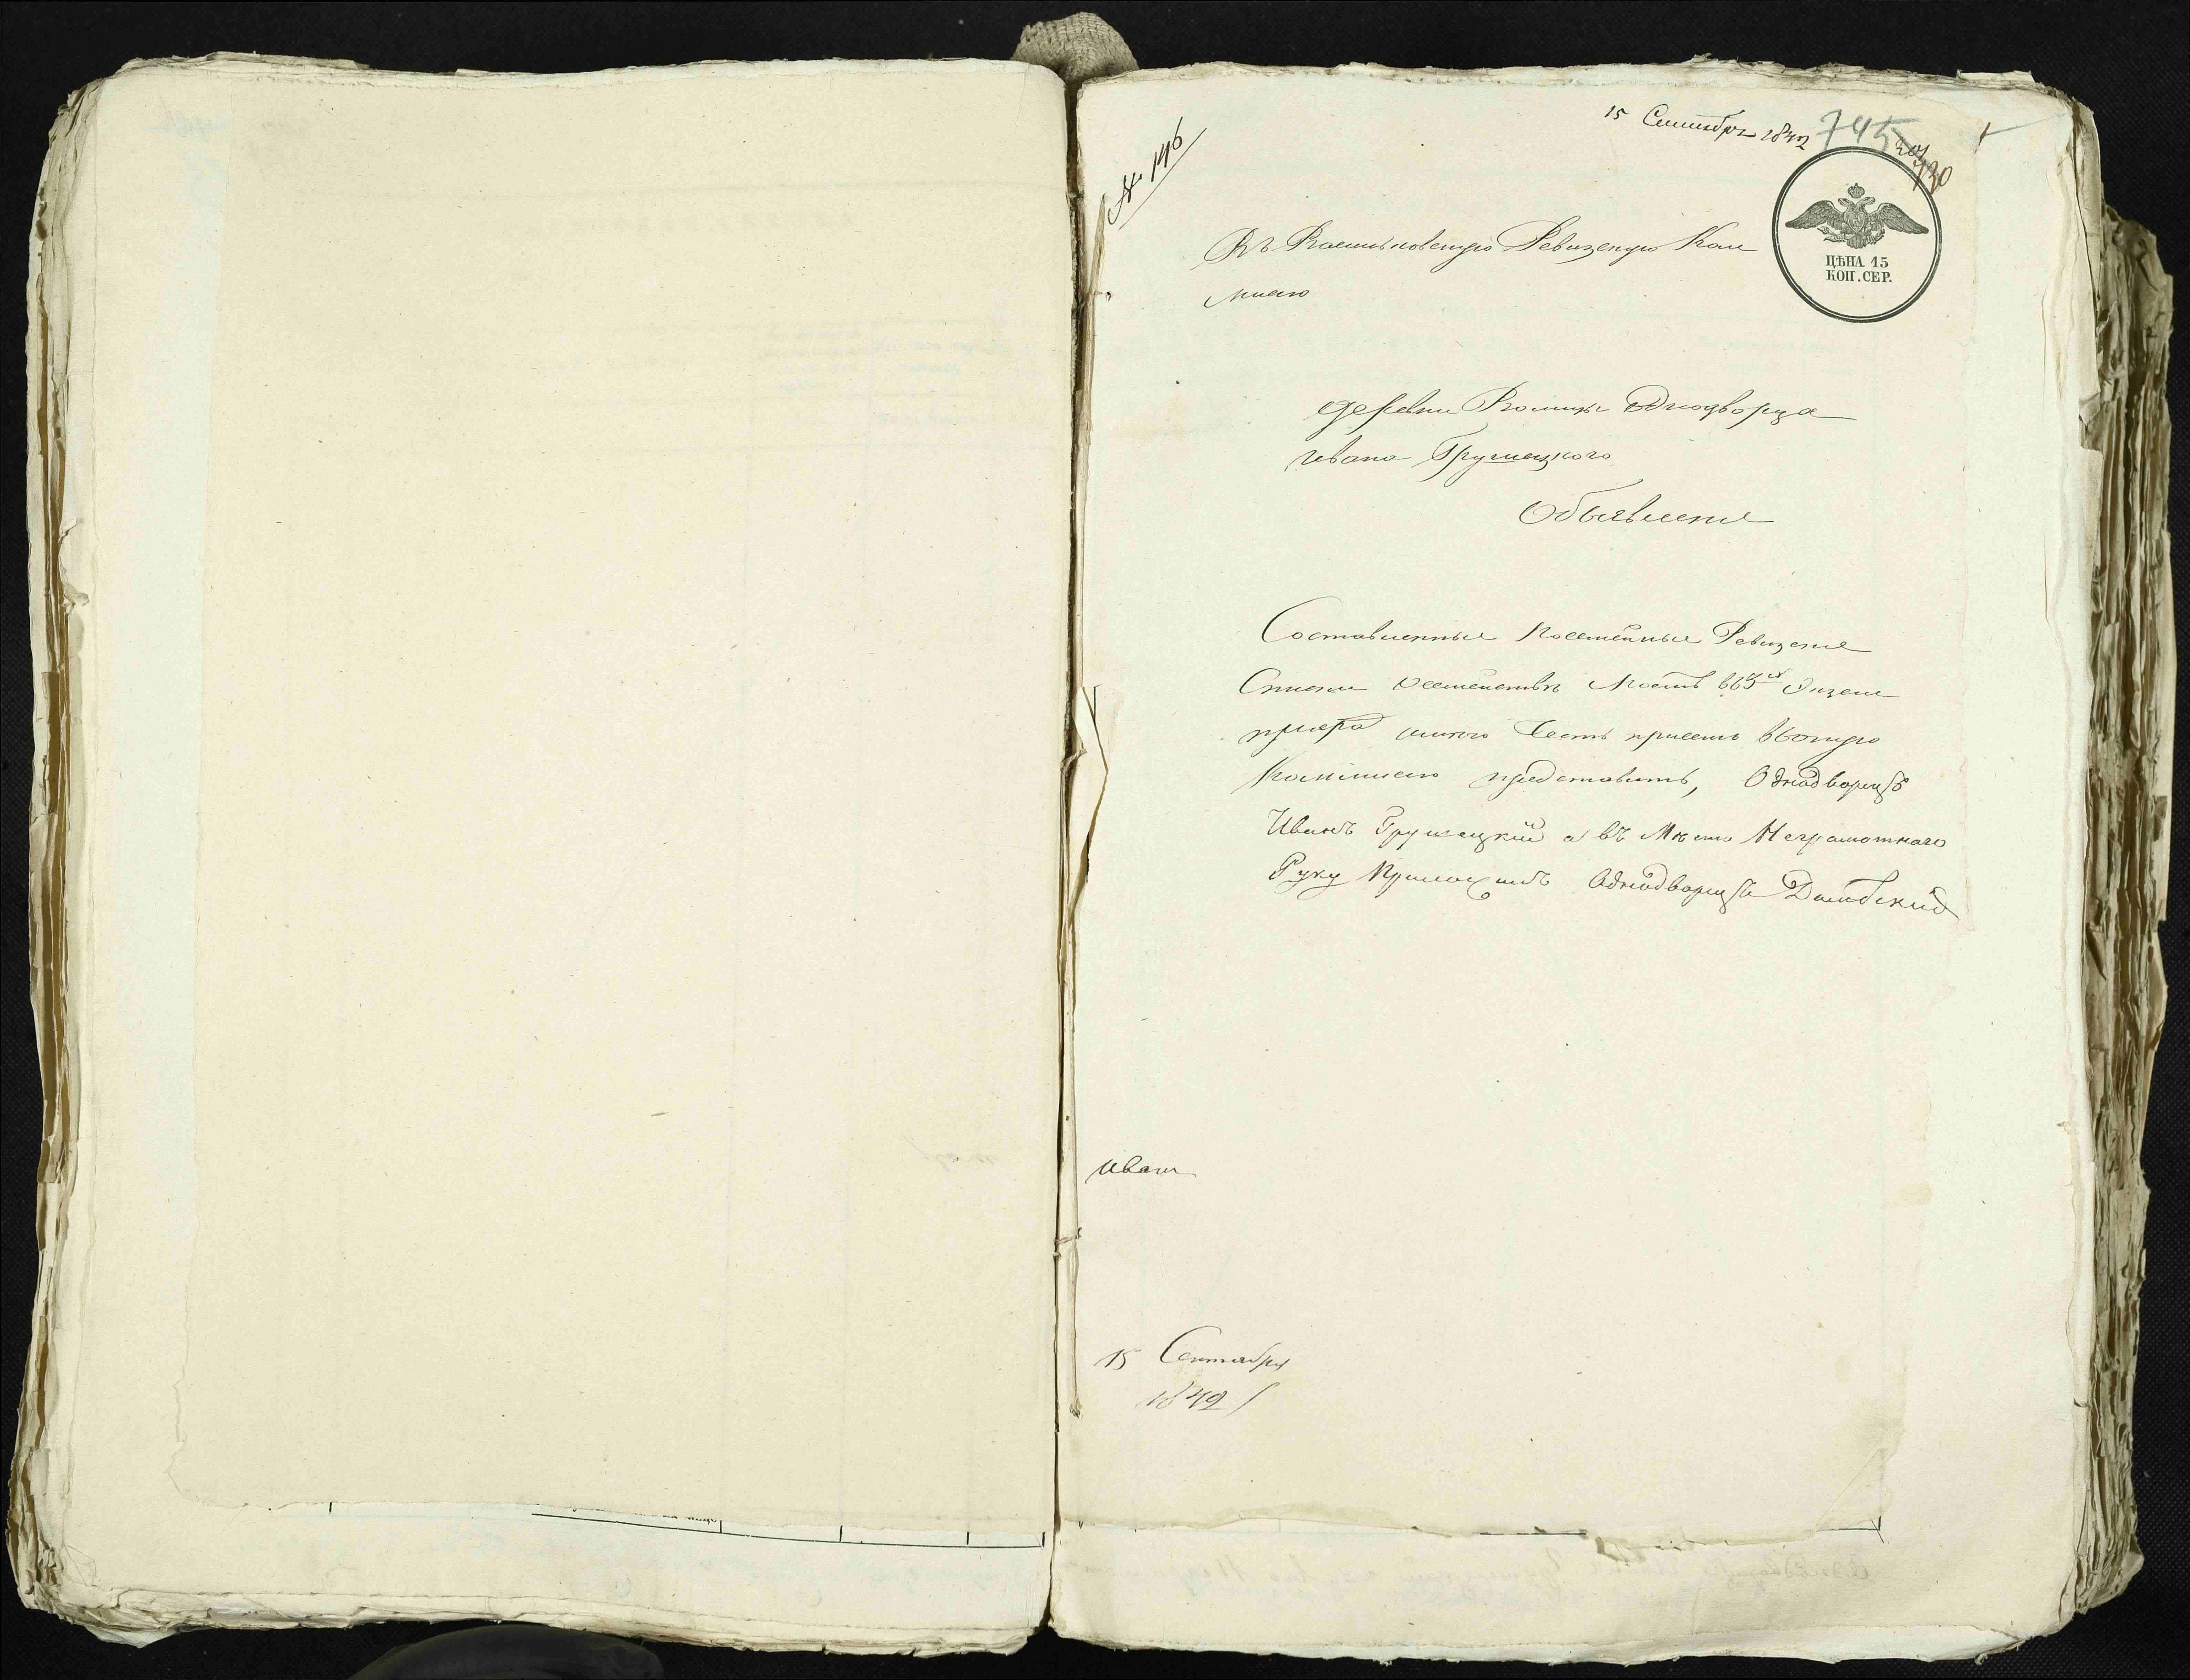 № 146
15 Сентября 1842
745
730
ЦѢНА 15
КОП. СЕР.
Въ Васильковскую Ревизскую Ком
мисию
деревни однодворца
Ивана Грушецкого
Объявление
Составленные посемейные Ревизские
Списки семейства моего въ 3х Экзем
плярахъ имею честь при семъ въ оную
Коммисию представить, Однодворецъ
Иванъ Грушецкий а въ Место Неграмотнаго
Руку Приложилъ Однодворецъ Домбский
Иван
15 Сентября
1842